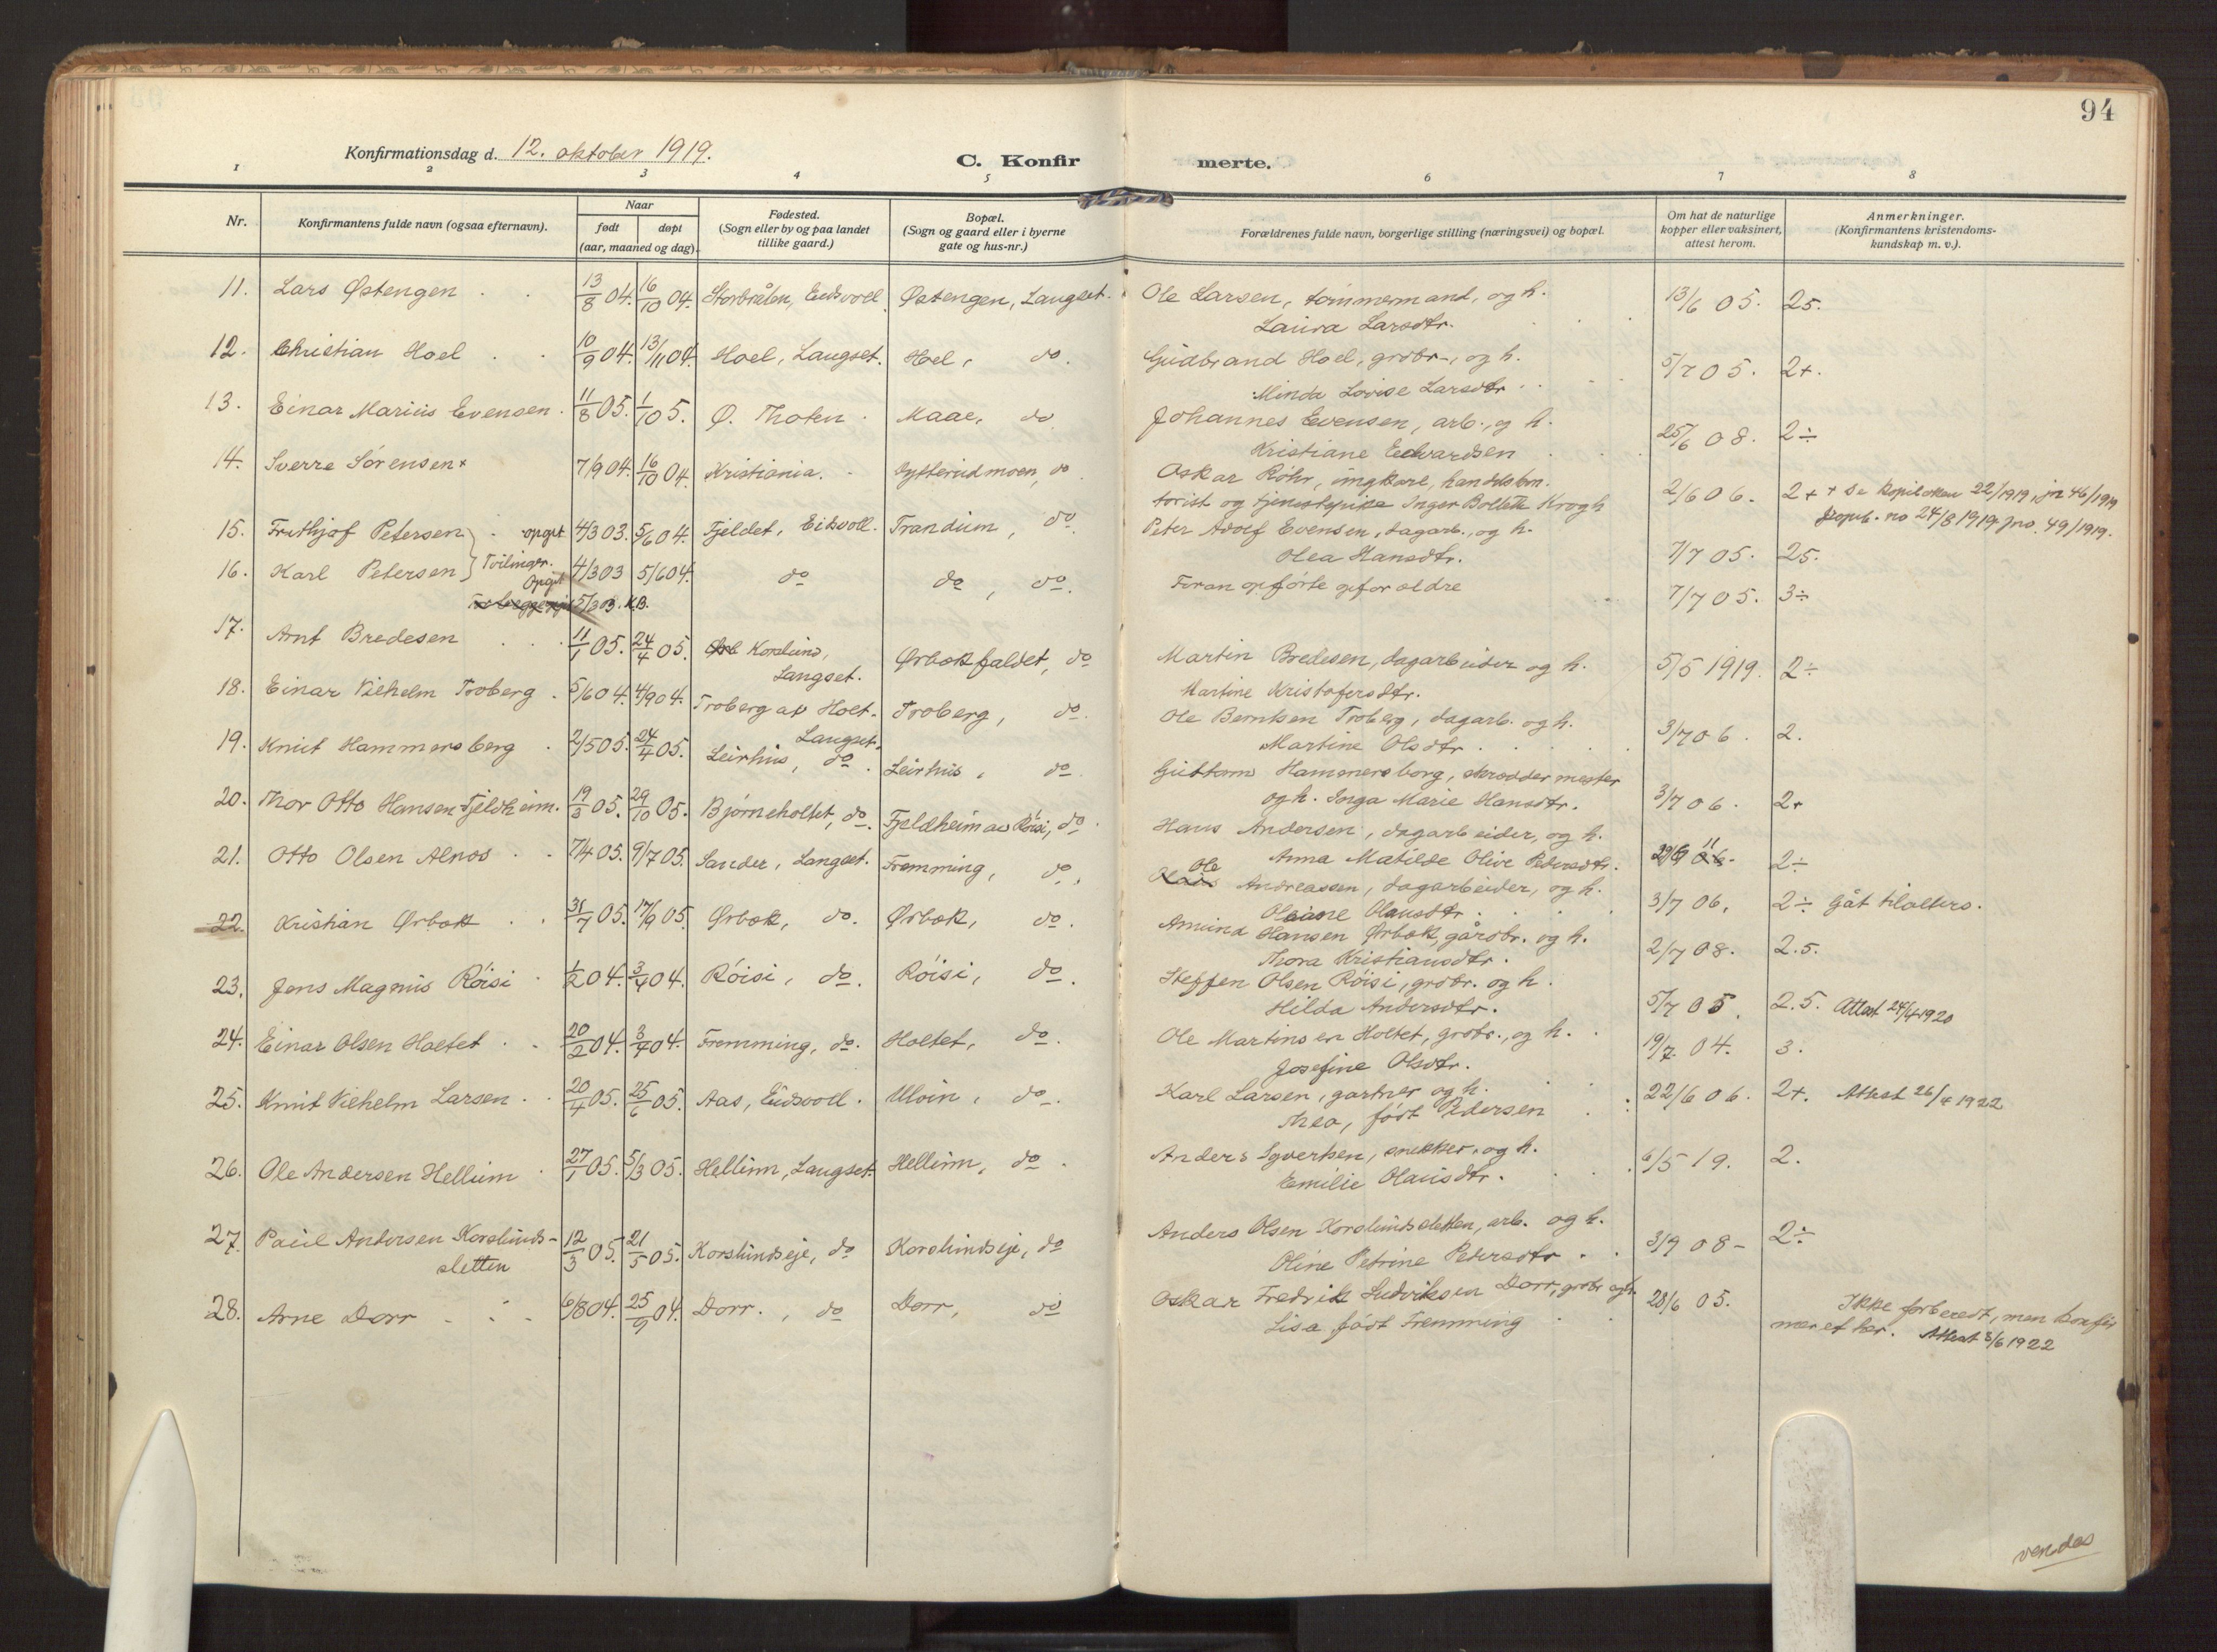 94
Konfirmationsdag d. 12. oktober 1919.
C. Konfir merte.
1 2 3 4 5 6 7 8
Nr.
Konfirmantens fulde navn (ogsaa efternavn).
Naar
født døpt
(aar, maaned og dag).
Fødested.
(Sogn eller by og paa landet
tillike gaard.)
Bopæl.
(Sogn og gaard eller i byerne
gate og hus-nr.)
Forældrenes fulde navn, borgerlige stilling (næringsvei) og bopæl.
Om hat de naturlige
kopper eller vaksinert,
attest herom.
Anmerkninger.
(Konfirmantens kristendoms-
kundskap m. v.).
11. Lars Østengen 13/8 04. 16/10 04. Eidsvoll Østengen, Langset. Ole Larsen, tømmermand, og h. 13/6 05. 25.
Laura Larsdtr.
12. Christian Hoel 10/9 04. 13/11 04. Hoel, Langset. Hoel, do. Gudbrand Hoel, grdbr., og h. 5/7 05. 2+.
Minda Lovise Larsdtr.
13. Einar Marius Evensen. 11/8 05. 1/10 5. Ø. Thoten. Maae, do. Johannes Evensen, arb., og h. 25/6 08. 2÷
Kristiane Edvardsen
14. Sverre Sørensen x 7/9 04. 16/10 04. Kristiania. do Oskar Røhr, ungkarl, handelskon- 2/6 06. 2+ + Se Kopiboken 22/1919, jn 46/1919
torist og tjenestepike Inger Bollette Krogh
Kopib. no 24/8 1919. Jno. 49/1919.
15. Frithjof Petersen opgit 4/3 03. 5/6 04. Fjeldet, Eidsvoll. Trandum, do Peter Adolf Evensen, dagarb., og h.
Olea Hansdtr. 7/7 05. 25.
16. Karl Petersen } Tvilinger. Opgit 4/3 03 5/6 04. do do, do. Foran opførte opforældre 7/7 05. 3÷
5/3 03. K.B.
17. Arnt Bredesen 11/1 05. 24/4 05. Korslund, Ørbækfaldet, do Martin Bredesen, dagarbeider og h. 5/5 1919. 2÷
Langset. Martine Kristofersdtr.
18. Einar Vilhelm Troberg. 5/6 04. 4/9 04. Troberg av Hoel. Troberg, do. Ole Berntsen Troberg, dagarb. og h. 3/7 06. 2.
Langset. Martine Olsdtr.
19. Knut Hammersberg. 2/5 05. 24/4 05. Leirhus, do. Leirhus, do. Guttorm Hammersborg, skræddermester
og h. Inga Marie Hansdtr. 3/7 06. 2+
20. Thor Otto Hansen Fjeldheim. 19/3 05. 29/10 05. Bjørneholtet, do. Fjeldheim av Røisi, do. Hans Andersen, dagarbeider, og h.
Anna Matilde Olive Pedersdtr. 11 2÷
21. Otto Olsen Alnos 7/4 05. 9/7 05. Sander, Langset. Fremming, do. Ole Andreassen, dagarbeider, og h. 3/7 06. 2÷ Gåt tilalters.
22. Kristian Ørbæk 31/7 05. 17/9 05. Ørbæk, do. Ørbæk, do. Amund Hansen Ørbæk, gårdbr. og h. 2/7 08. 2.5.
Thora Kristiansdtr.
23. Jens Magnus Røisi 1/2 04. 3/4 04. Røisi, do. Røisi, do. Steffen Olsen Røisi, grdbr. og h.
Hilda Andersdtr. 5/7 05. 2.5. Attest 24/4 1920
24. Einar Olsen Holtet 20/2 04. 3/4 04. Fremming, do. Holtet, do. Ole Martinsen Holtet, grdbr., og h. 19/7. 04. 3.
Josefine Olsdtr.
25. Knut Vilhelm Larsen. 20/4 05. 25/6 05. Aas, Eidsvoll. Ulvin, do. Karl Larsen, gartner og h. 22/6 06. 2+. Attest 26/4 1922
Thea, født Pedersen
26. Ole Andersen Hellum 27/1 05. 5/3 05. Hellum, Langset. Hellum, do. Anders Syversen, snekker, og h. 6/5 19. 2.
Emilie Olausdtr.
27. Paul Andersen Korslunds- 12/3 05. 21/5 05. Korslundseje, do Korslundseje, do Anders Olsen Korslundsletten, arb. og h. 3/9 08- 2÷
sletten Oline Petrine Pedersdtr.
28. Arne Dorr 6/8 04. 25/9 04. Dorr., do Dorr, do Oskar Fredrik Ludviksen Dorr, grdbr og h. 28/6 05.
Lisa, født Fremming
Ikke forberedt, men konfir
meret her. Attest 3/6 1922
vendes